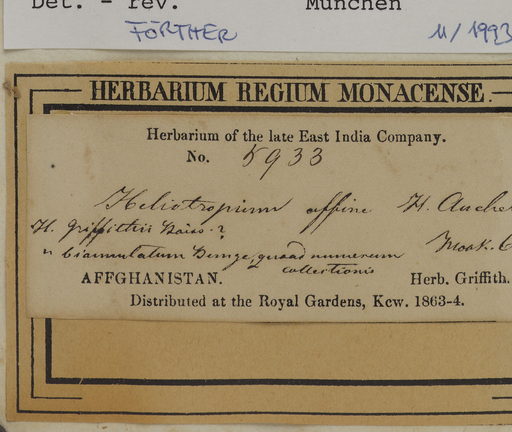 Det. - rev. München
FÖRTHER 11/1993
HERBARIUM REGIUM MONACENSE.
Herbarium of the late East India Company.
No. 5933
Heliotropium affine H. Auche
H. Griffithii Boiss. ?
" Bunge, quoad numerum
collectionis
AFFGHANISTAN. Herb. Griffith.
Distributed at the Royal Gardens, Kew. 1863-4.